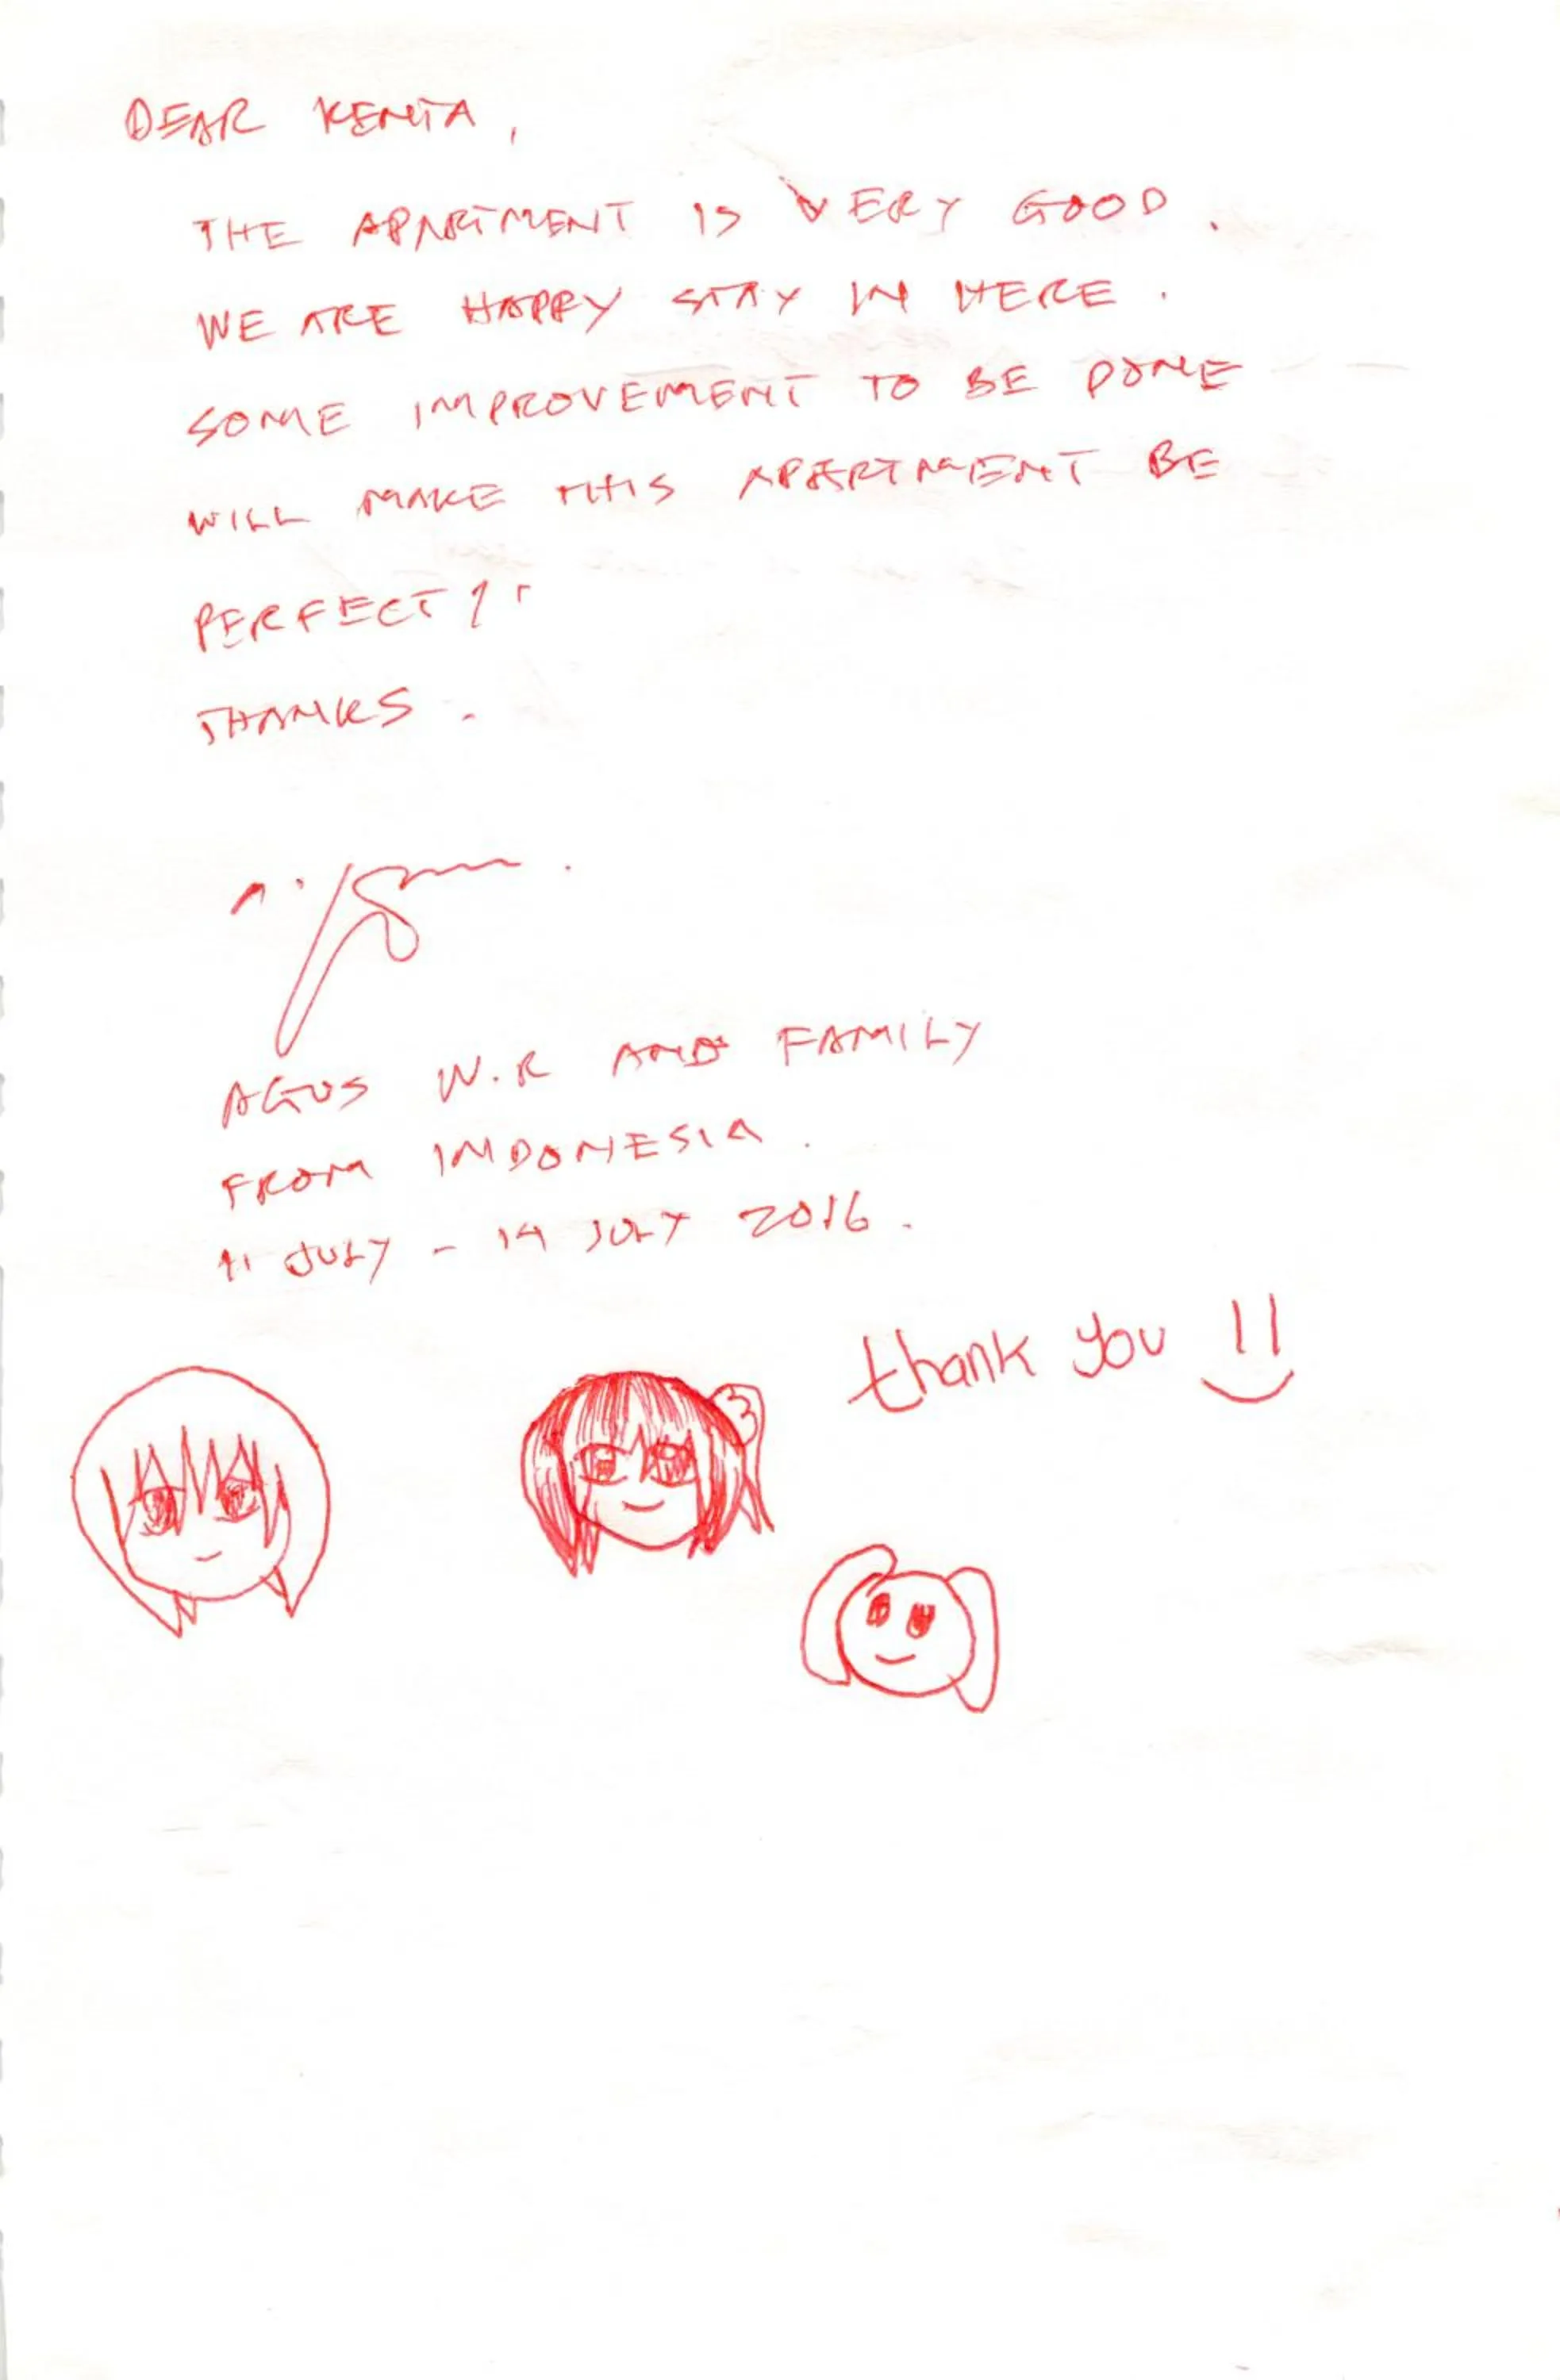 DEAR KENTA,
THE APARTMENT IS VERY GOOD.
WE ARE HAPPY STAY IN HERE.
SOME IMPROVEMENT TO BE DONE
WILL MAKE THIS APARTMENT BE
PERFECT!!
THANKS.
AGUS W.R AND FAMILY
FROM INDONESIA.
11 JULY - 14 JULY 2016.
thank you !!